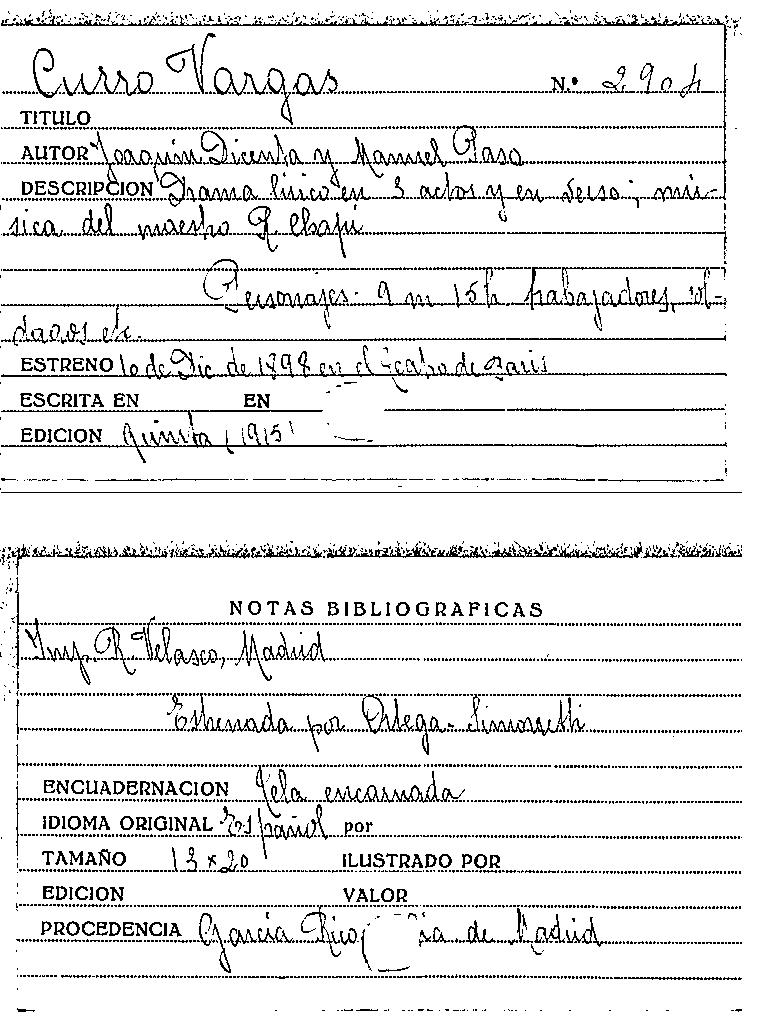 Curro Vargas N.º 2904
TITULO
AUTOR Joaquin Dicenta y Manuel Paso
DESCRIPCION Drama lírico en 3 actos y en verso; mú-
sica del maestro R Chapí
Personajes. 9 m 15 h trabajadores, sol-
dados etc.
ESTRENO 10 de Dic de 1898 en el Teatro de Paris
ESCRITA EN EN
EDICION quinta, 1915
NOTAS BIBLIOGRAFICAS
Imp. R. Velasco, Madrid
Estrenada por Ortega-Simonetti
ENCUADERNACION Tela encarnada
IDIOMA ORIGINAL Español por
TAMAÑO 13 x 20 ILUSTRADO POR
EDICION VALOR
PROCEDENCIA García Rico, de Madrid